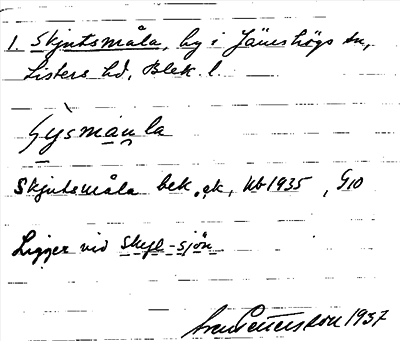 1. Skjutsmåla, by i Jämshögs sn,
Listers hd, Blek. l.
Skjutsmåla bek. ek, Kb 1935, G10
Ligger vid Skyl-sjön
Sven Benson 1937